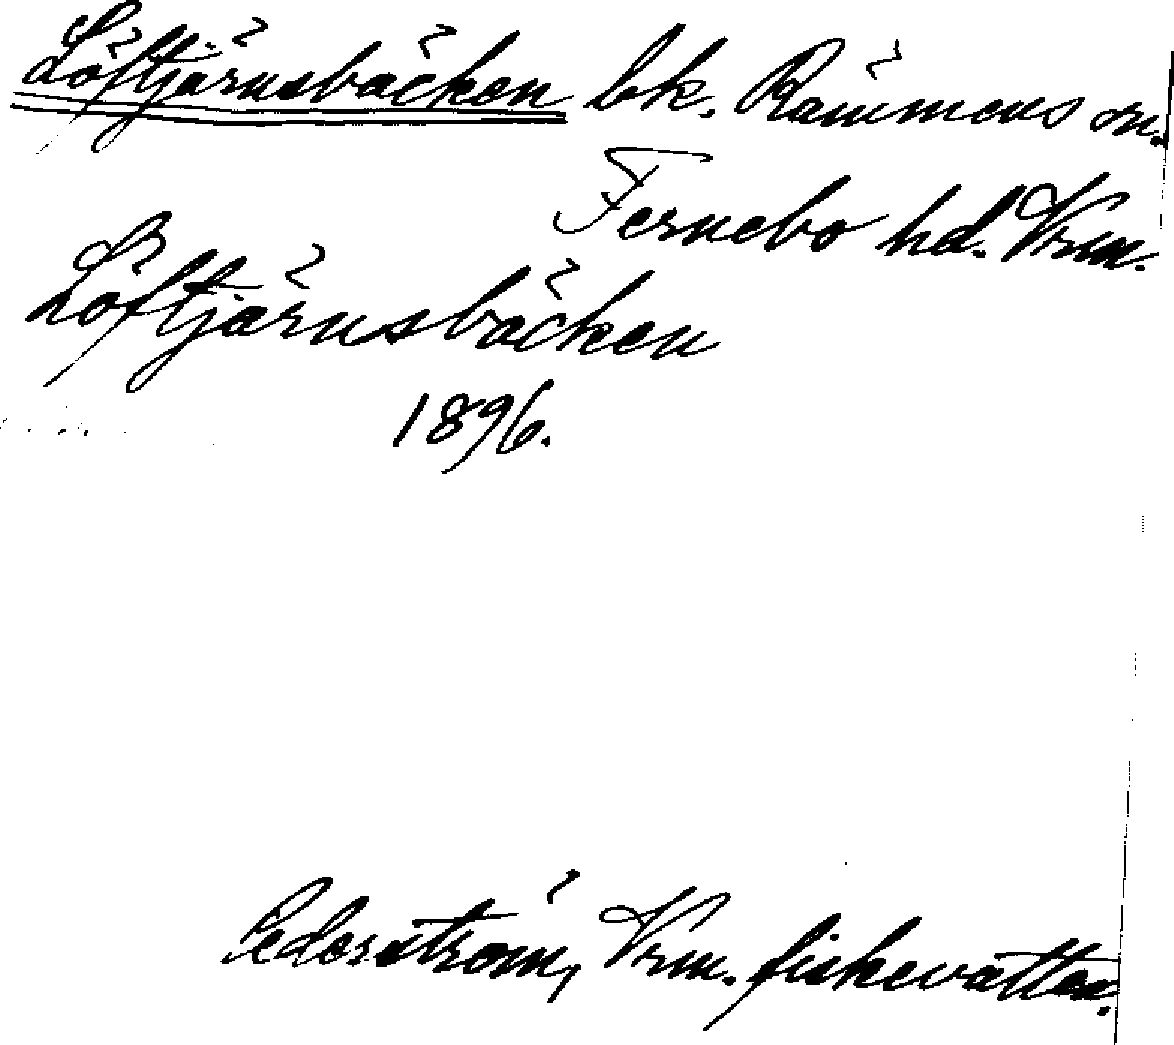 Löftjärnsbäcken bk. Rämmens sn.
Fernebo hd. Vrm.
Löftjärnsbäcken
1896.
Cederström, Vrm. fiskevatten.